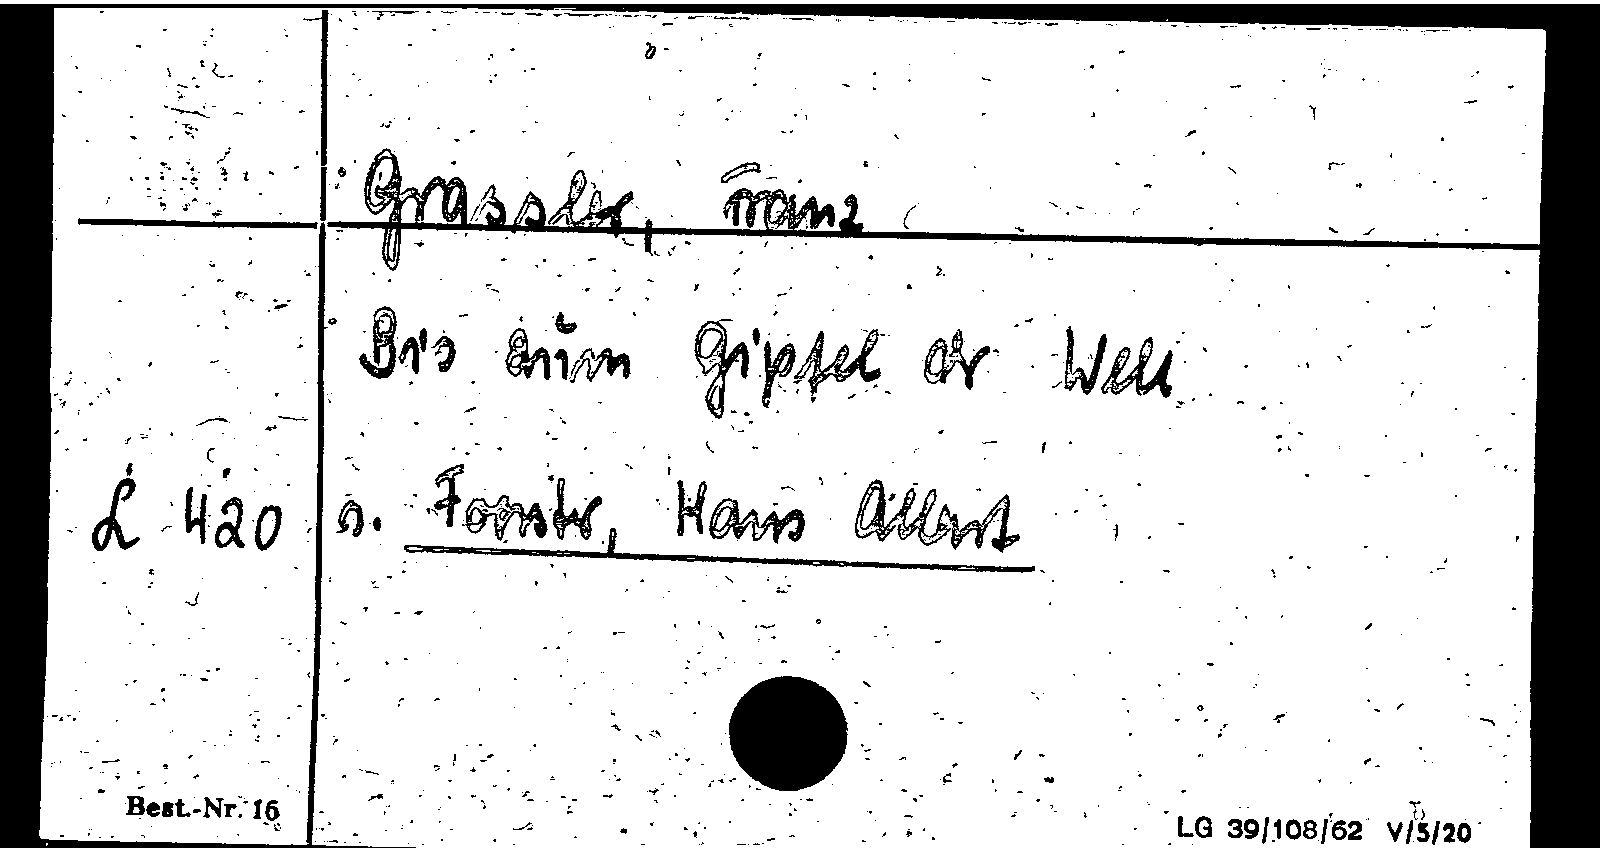 Grassler, Franz
Bis zum Gipfel der Welt
L 420 s. Forster, Hans Albert
Best.-Nr. 16
LG 39/108/62 V/5/20